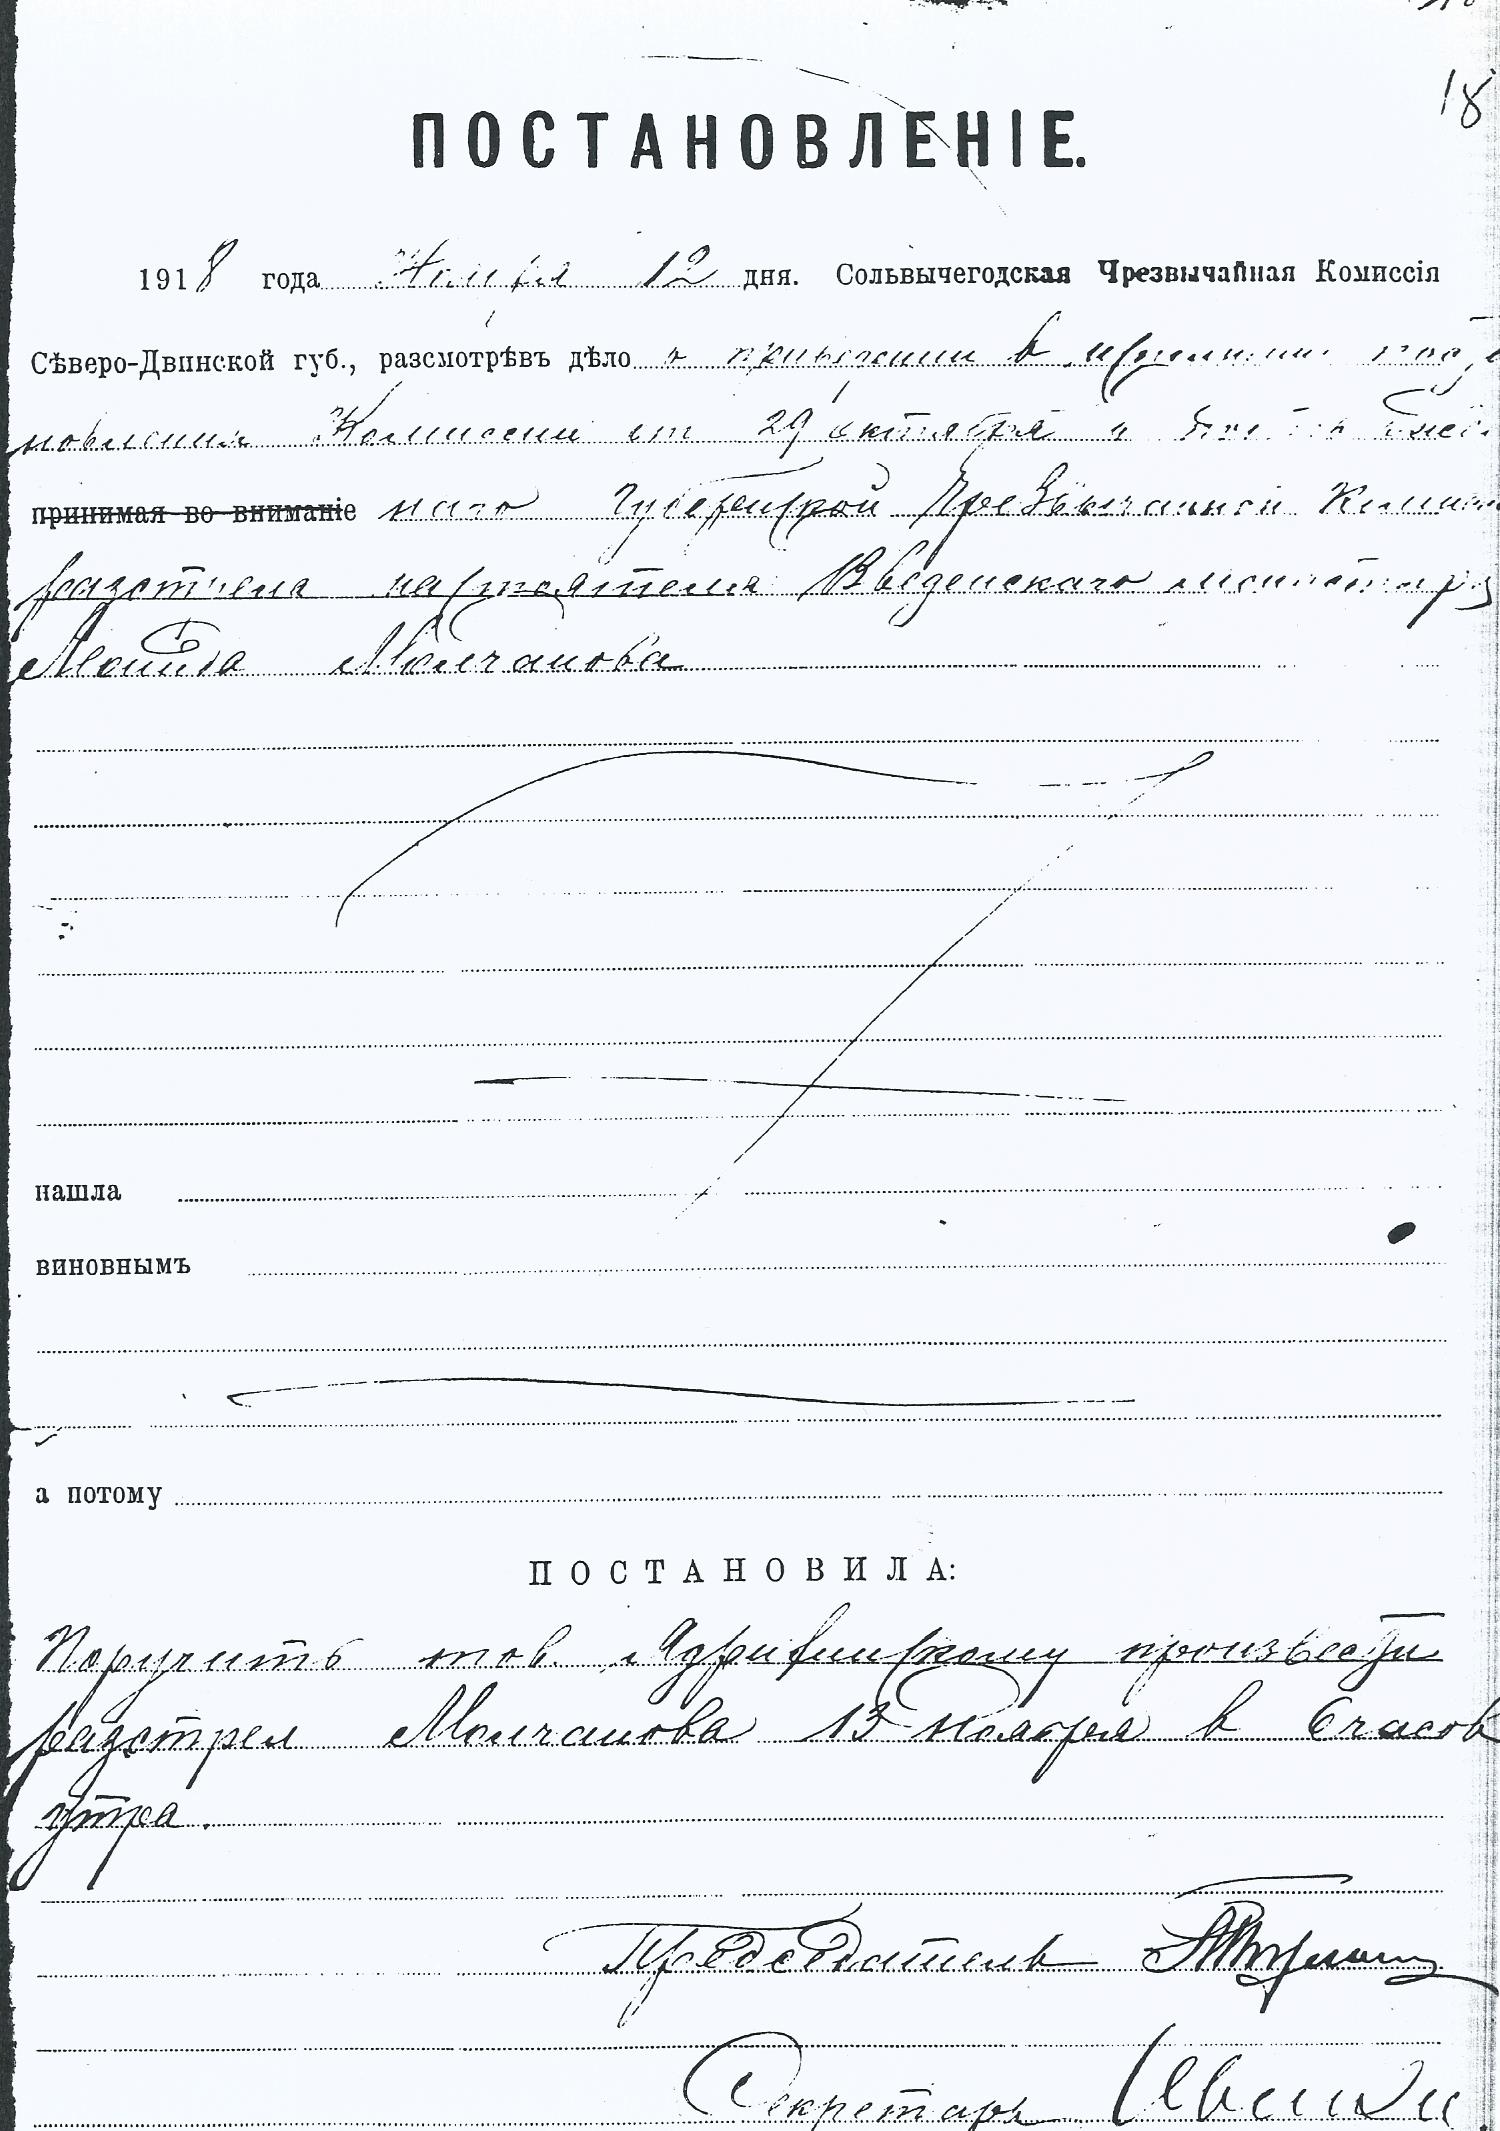 18
ПОСТАНОВЛЕНІЕ.
1918 года Ноября 12 дня. Сольвычегодская Чрезвычайная Комиссія
Сѣверо-Двинской губ., разсмотрѣвъ дѣло о приведении в
новления Комиссии от 29 октября и
принимая во вниманіе наго Губернской Чрезвычайной
разстрела настоятеля Введенскаго
Молчанова
нашла
виновнымъ
а потому
ПОСТАНОВИЛА:
Поручить тов. произвести
разстрел Молчанова 13 ноября в 6 часов
утра.
Председатель
Секретарь